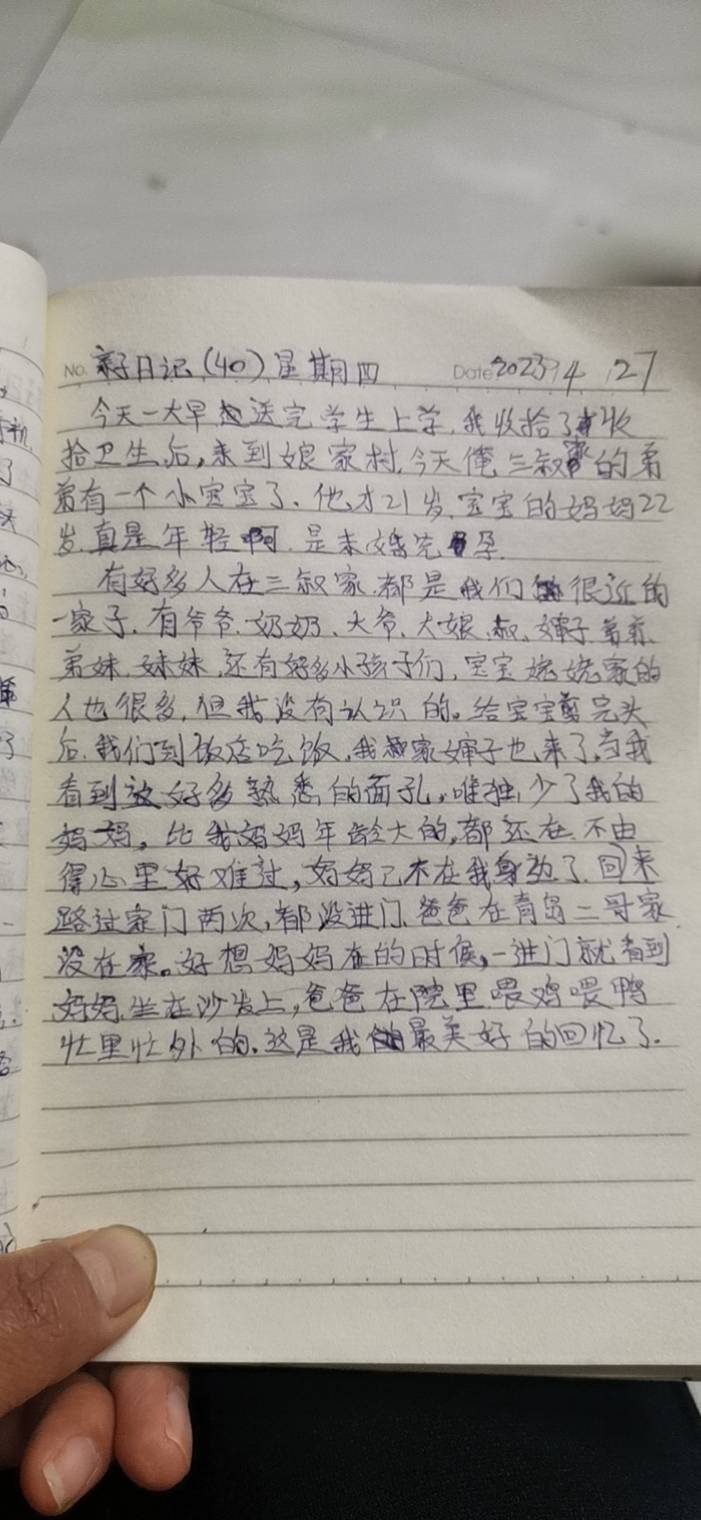 No. 亲子日记(40)星期四 Date 2023 4 27
今天一大早送完学生上学,我收拾了收
拾卫生后,来到娘家村,今天俺三叔家的弟
弟有一个小宝宝了.他才21岁,宝宝的妈妈22
岁,真是年轻啊.是未婚先孕.
有好多人在三叔家.都是我们很近的
一家子.有爷爷.奶奶.大爷.大娘.叔.婶子.弟弟.
弟妹.妹妹.还有好多小孩子们,宝宝姥姥家的
人也很多,但我没有认识的。给宝宝剪完头
后.我们到饭店吃饭,我叔家婶子也来了,当我
看到好多熟悉的面孔,唯独少了我的
妈妈。比我妈妈年龄大的,都还在.不由
得心里好难过,妈妈已不在我身边了.回来
路过家门两次,都没进门.爸爸在青岛二哥家
没在家。好想妈妈在的时候,一进门就看到
妈妈坐在沙发上,爸爸在院里喂鸡喂鸭
忙里忙外的.这是我最美好的回忆了.